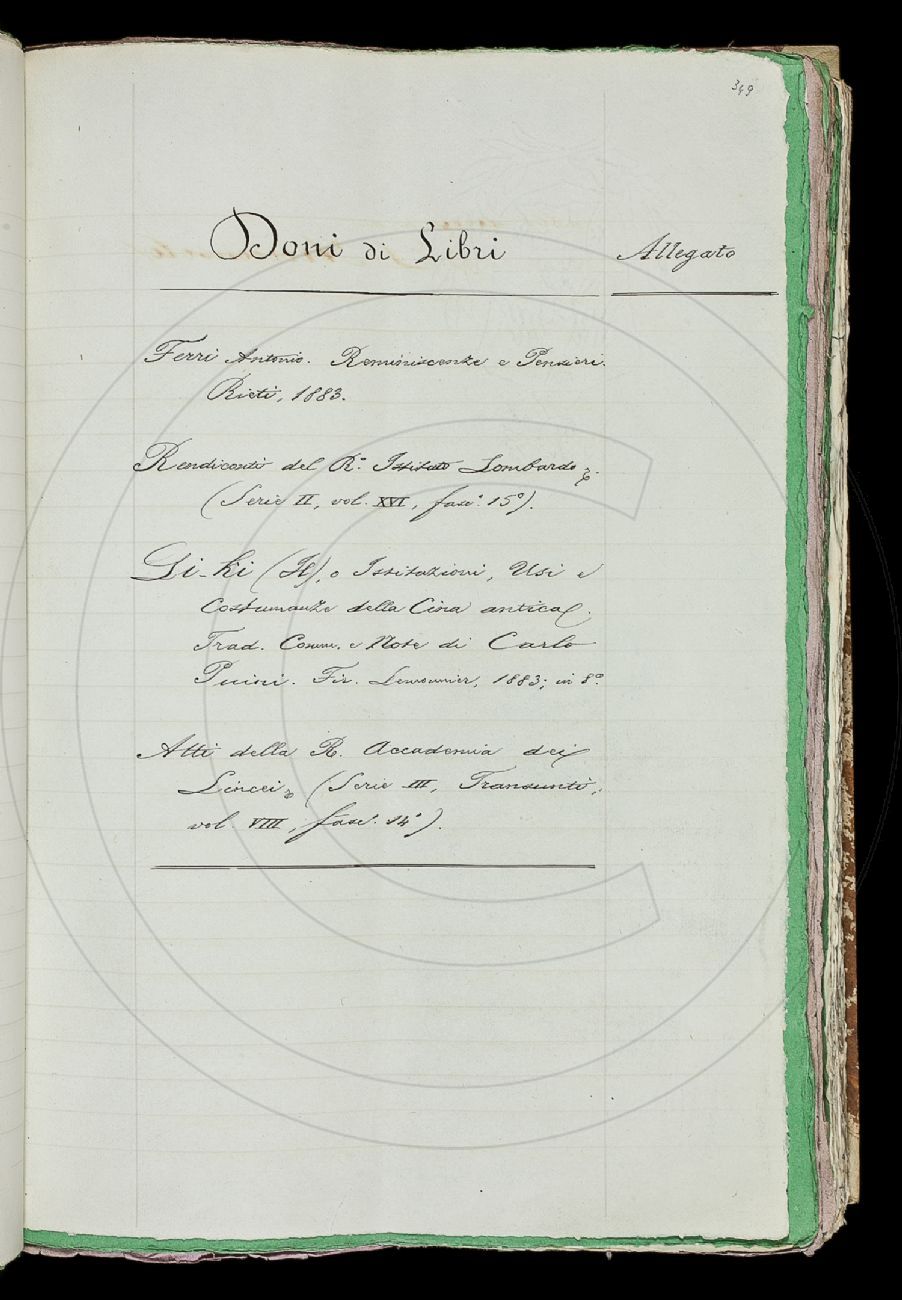 349
Doni di Libri
Allegato
Ferri Antonio. Reminiscenze e Pensieri.
Rieti, 1883.
Rendiconti del R.º Istituto Lombardo.
(Serie II, vol. XVI, fasc.º 15º).
Li-ki (Il), o Istituzioni, Usi e
Costumanze della Cina antica.
Trad. Comm. e Note di Carlo
Puini. Fir. Lemonnier, 1883; in 8º.
Atti della R. Accademia dei
Lincei, (Serie III, Transunti,
vol VIII, fasc.º 14º).